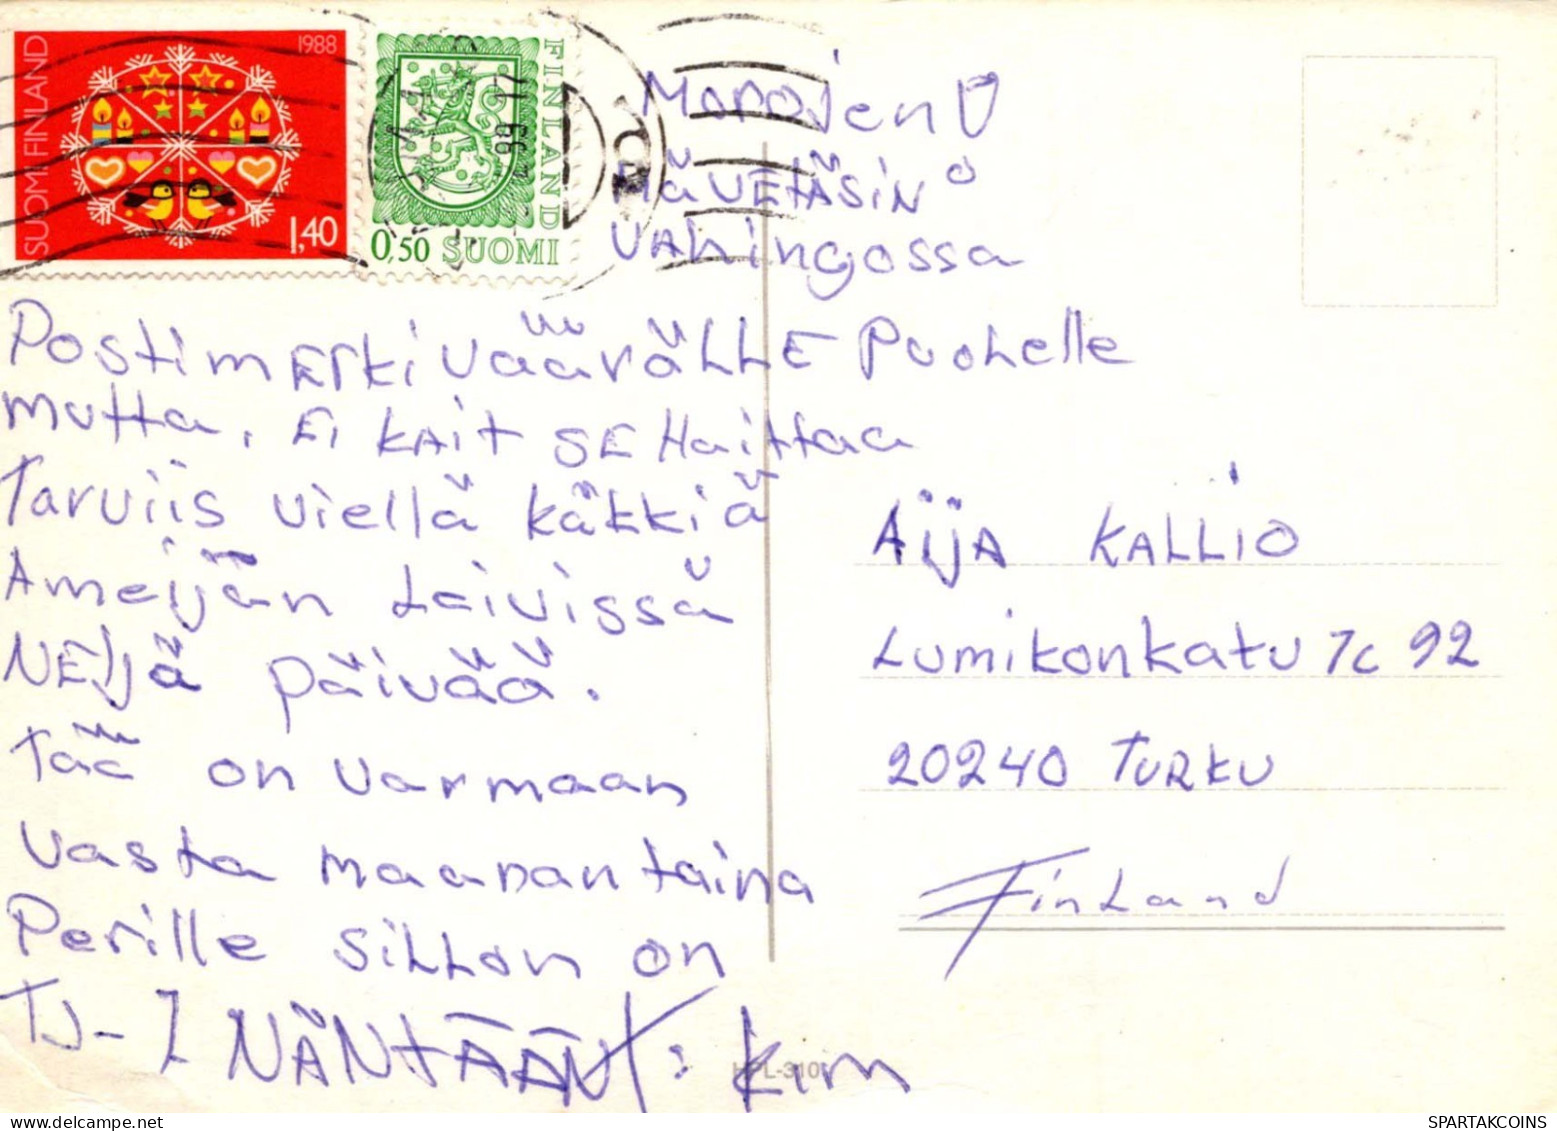 SUOMI FINLAND
1988
1,40
FINLAND
0,50 SUOMI
99 17
Morojen
HäVEtÄSiN
VAhingossa
PostimErki vääräLLE Puohelle
mutta, Ei KAit SE Haittaa
Tarviis viellä käkkiä
Ameijän Leivissä
NEljä päivää.
Tää on varmaan
vasta maanantaina
Perille silloon on
TJ-7 NÄNtÄÄN : Kim
AijA KALLIO
Lumikonkatu 7c 92
20240 TURKU
FinLand
HPL-310
SPARTAKCOINS.COM